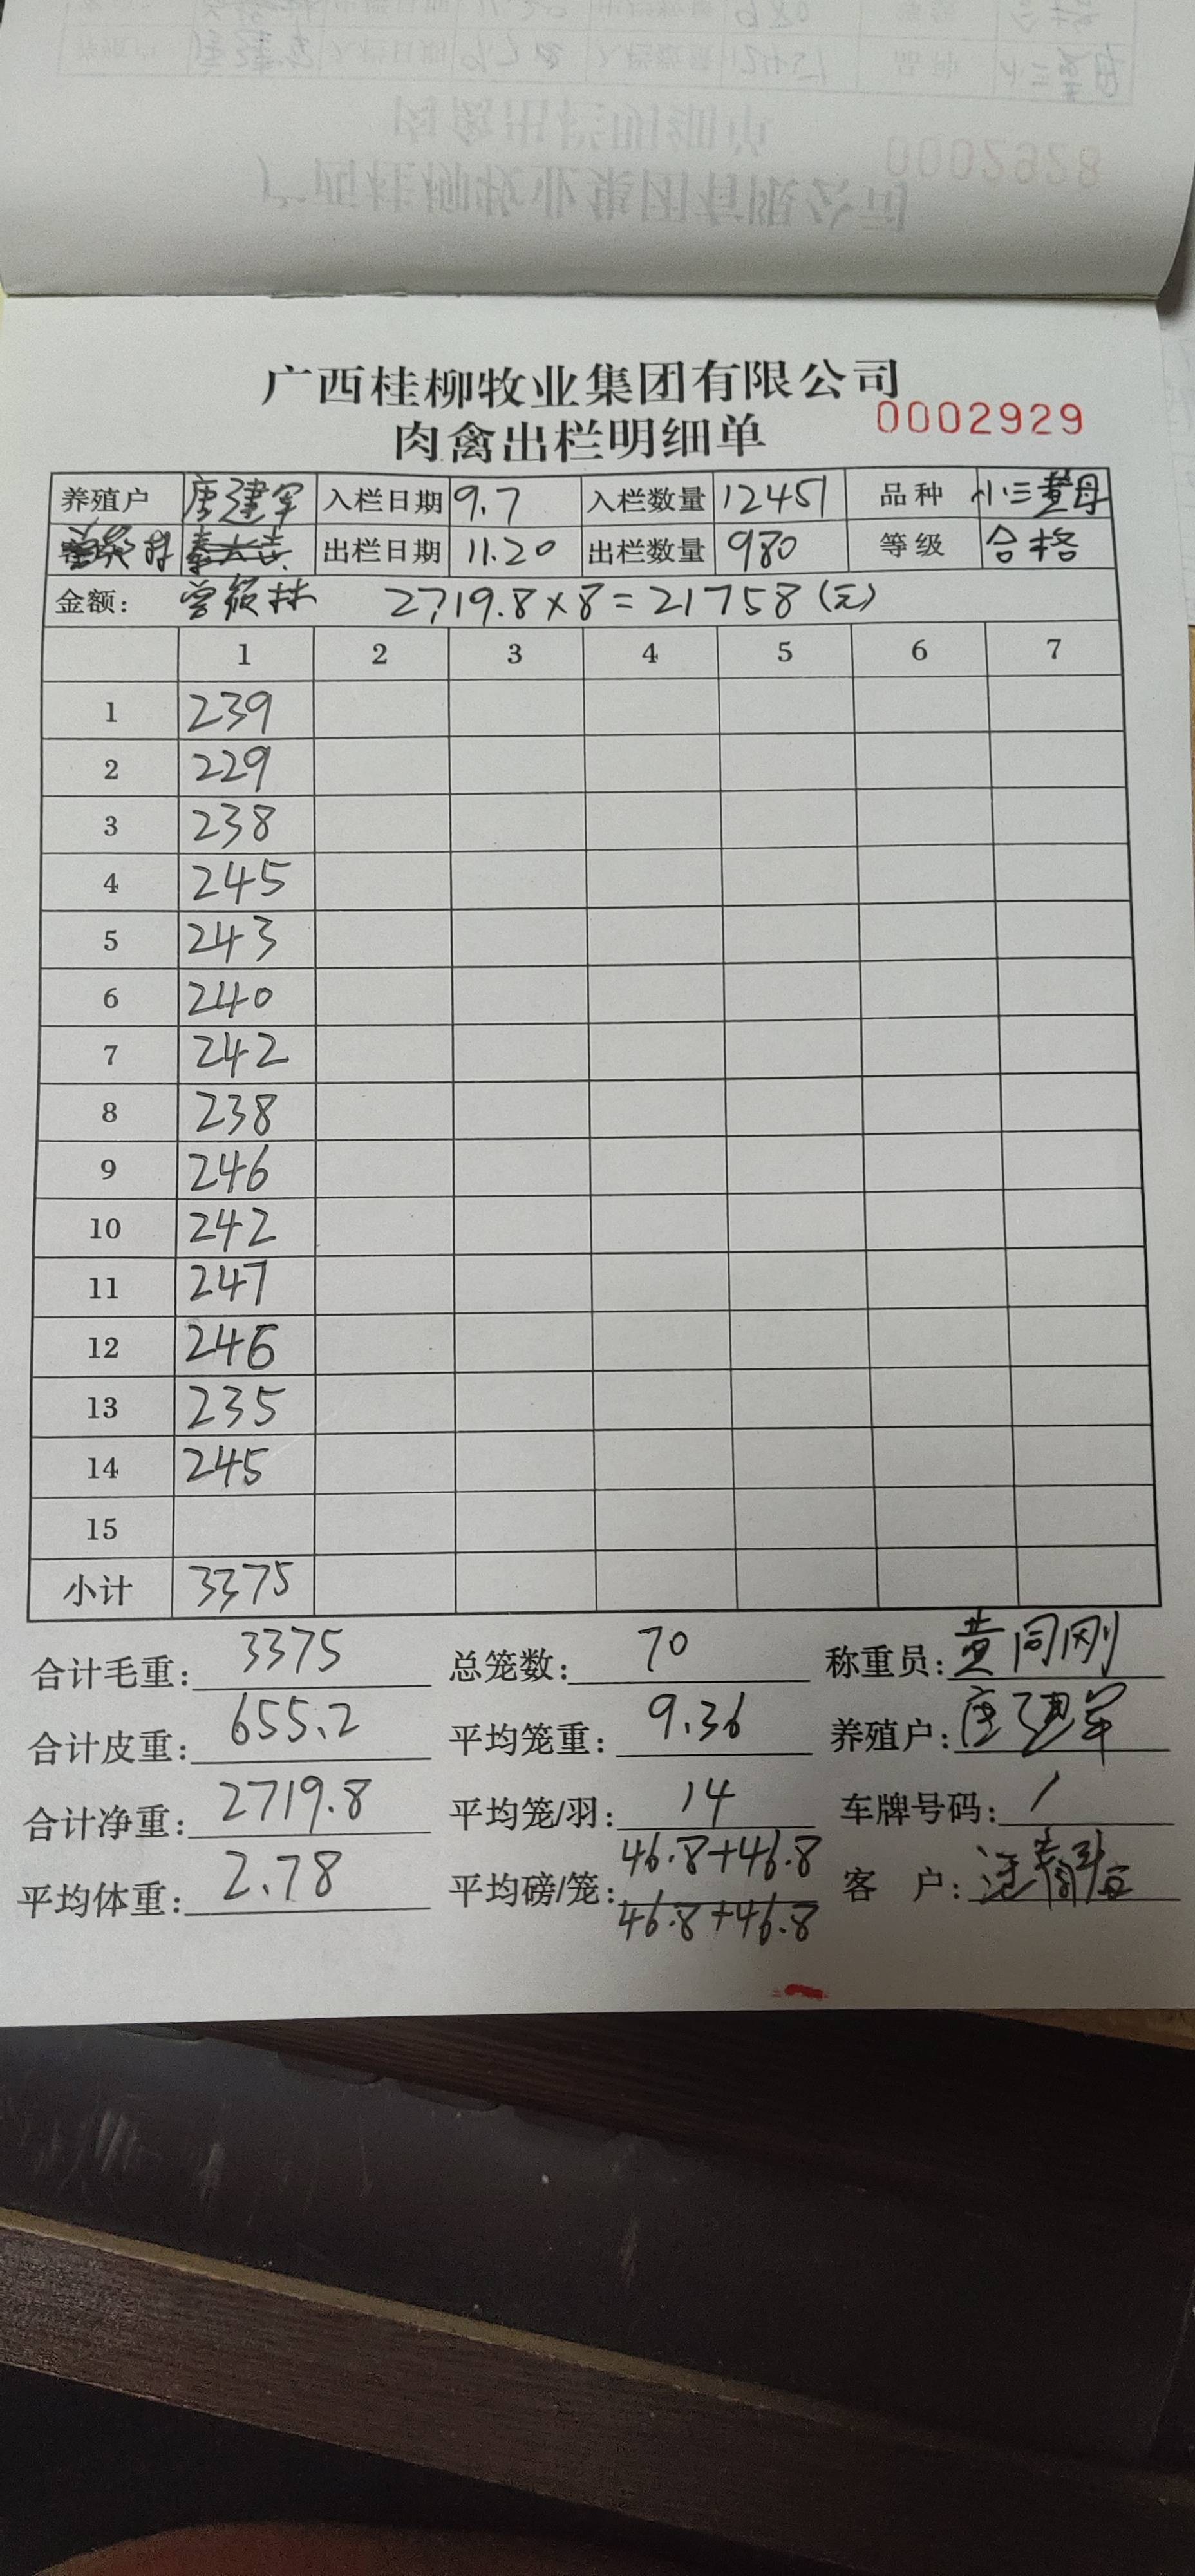 0002928
广西桂柳牧业集团有限公司
肉禽出栏明细单
0002929
养殖户 唐建军 入栏日期 9.7 入栏数量 12451 品种 小三黄母
出栏日期 11.20 出栏数量 980 等级 合格
金额: 林 2719.8×8=21758(元)
1 2 3 4 5 6 7
1 239
2 229
3 238
4 245
5 243
6 240
7 242
8 238
9 246
10 242
11 247
12 246
13 235
14 245
15
小计 3375
合计毛重: 3375 总笼数: 70 称重员: 黄同刚
合计皮重: 655.2 平均笼重: 9.36 养殖户: 唐建军
合计净重: 2719.8 平均笼/羽: 14 车牌号码: /
平均体重: 2.78 平均磅/笼: 46.8+46.8 客 户:
46.8+46.8